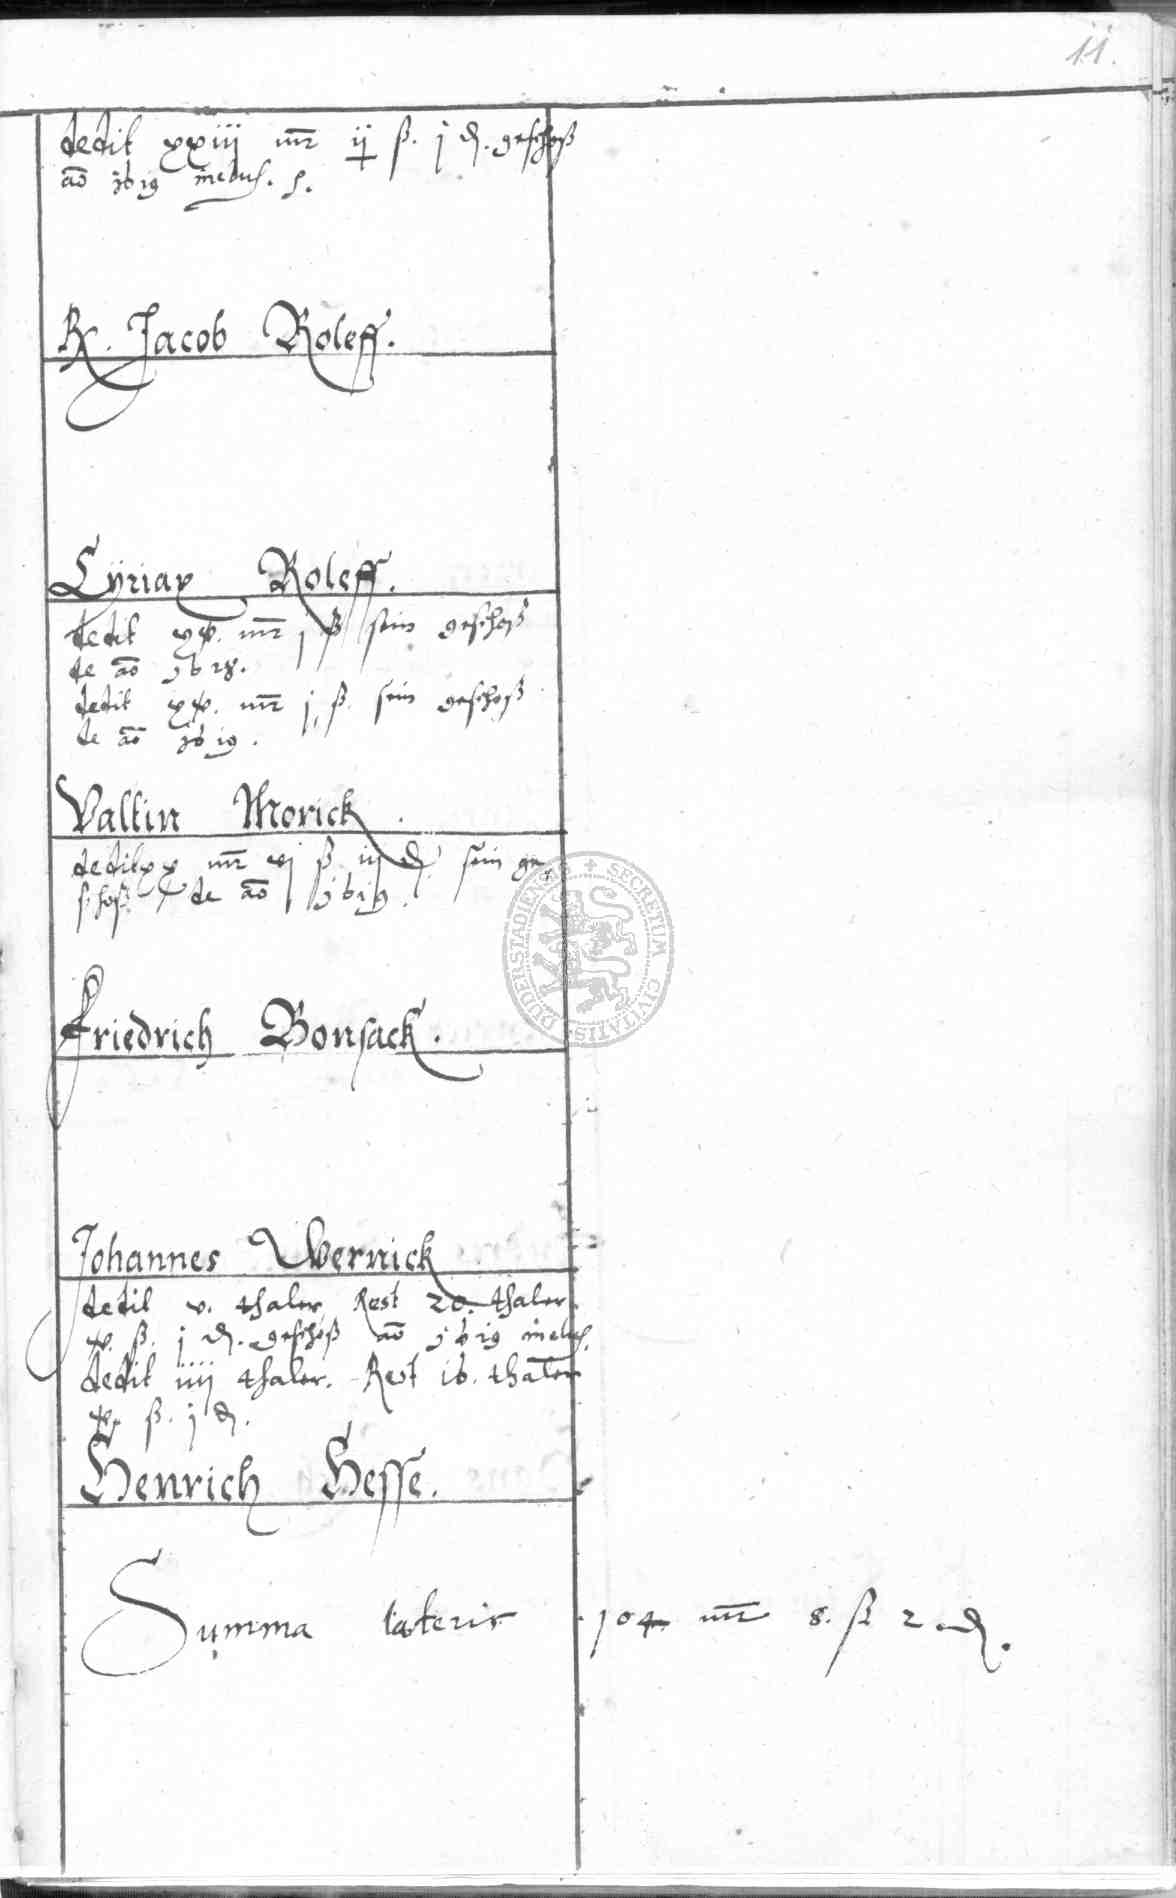 11.
dedit xxiij mr ij ß. j d. geschoß
ao 1619
Jacob Roleff.
Cyriax Roleff.
dedit xv. mr j ß sein geschoß
de ao 1618.
dedit xv. mr j ß. sein geschoß
de ao 1619.
Valtin Morick.
dedit xv mr vj ß iij d. sein ge
schoß de ao 1619.
SECRETUM CIVITATIS DUDERSTADIENSIS
Friedrich Bonsack.
Johannes Wernick
dedit v. thaler Rest 20. thaler
x. ß. j d. geschoß ao 1619
dedit iiij thaler. Rest 16. thaler
x. ß. j d.
Henrich Hesse.
Summa lateris 104 mr 8. ß 2 d.